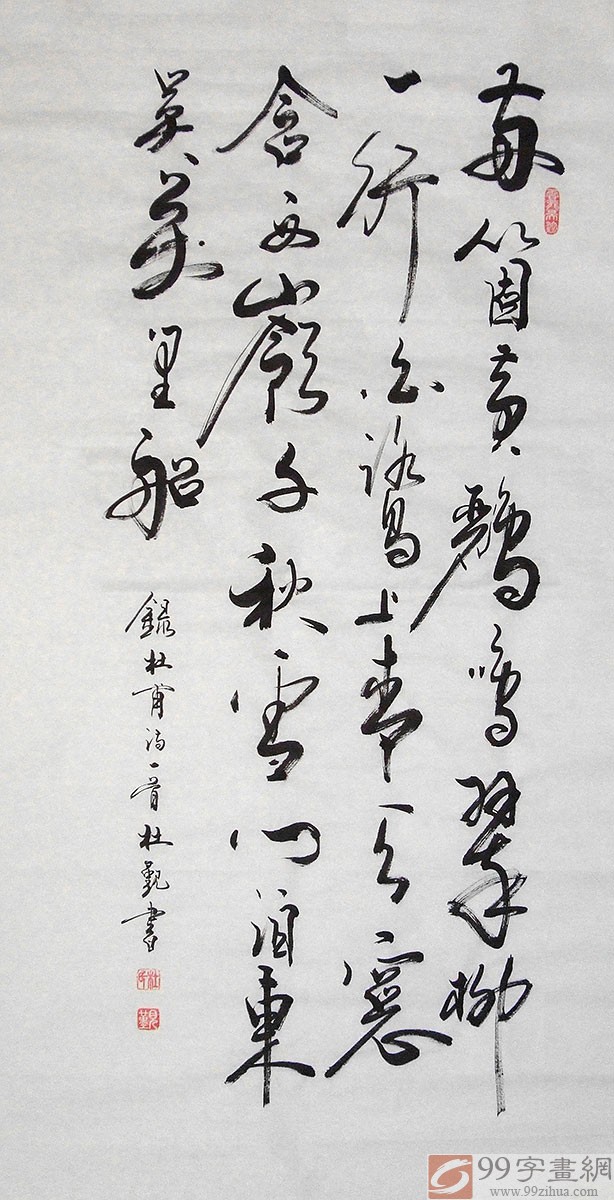 兩箇黃鸝鳴翠柳
一行白鷺上青天窻
含西嶺千秋雪門泊東
吳萬里船
錄杜甫詩一首杜觀書
99字畫網
www.99zihua.com